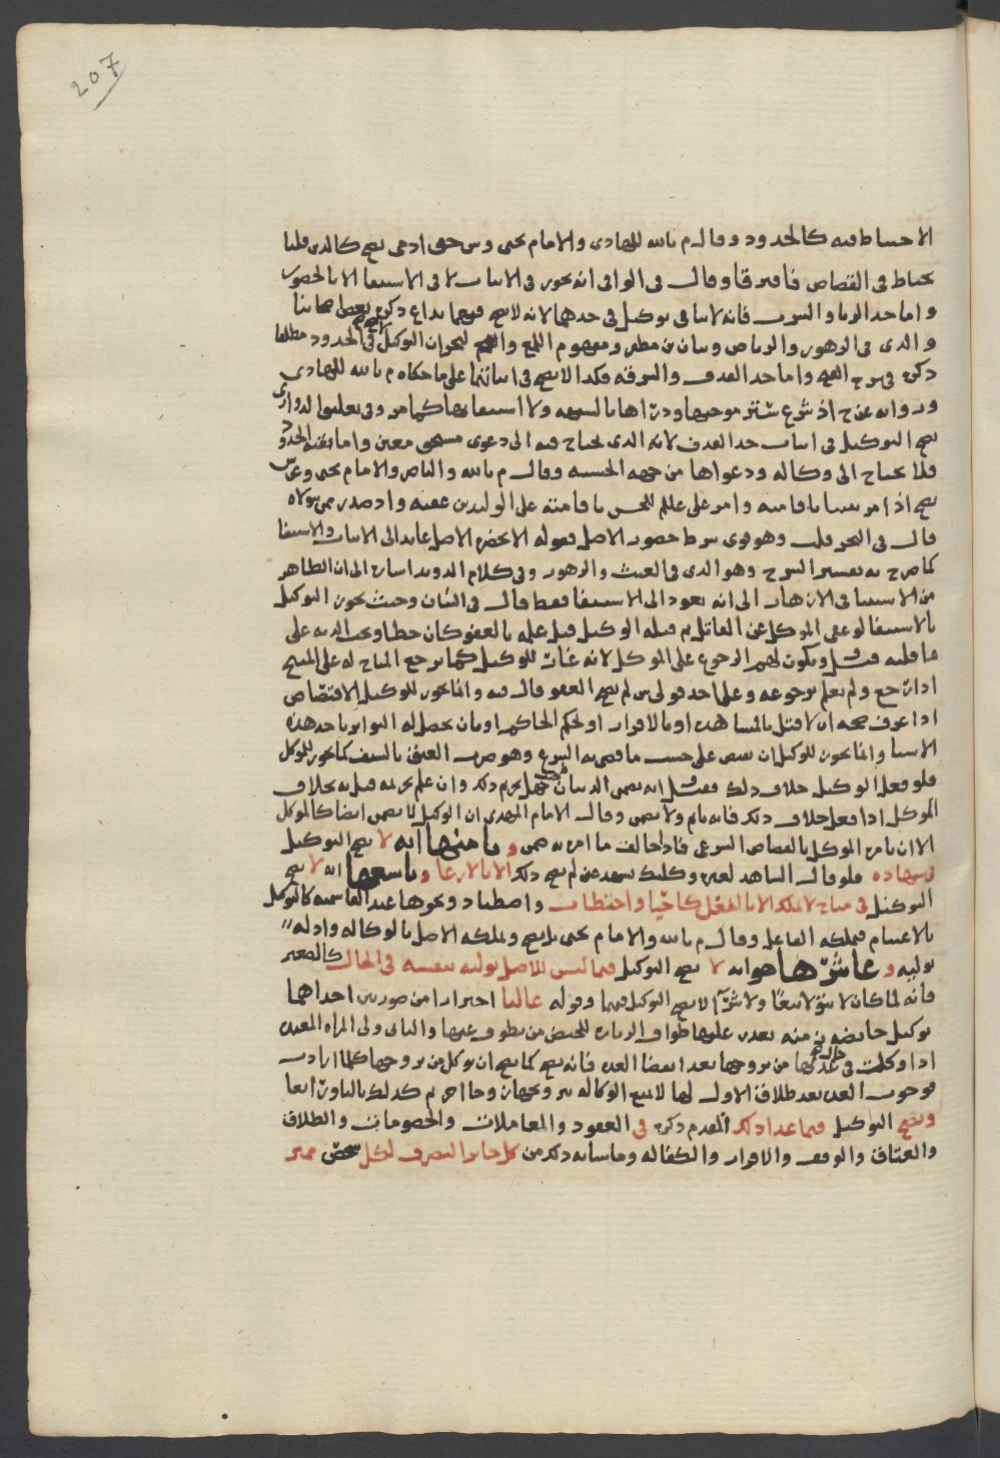 207
الاحتياط فيه كالحدود وقال م بالله للهادي والامام يحيى وش حق ادمي فصح كالدين قلنا
يحتاط في القصاص فافترقا وقال في الوافي انه يجوز في الاثبات لا في الاستيفا الا بالحضور
واما حد الزنا والشرب فانه لا يتاتى توكيل في حدهما لانه لا يصح فيهما تداع ذكره بعض اصحابنا
والذي في الزهور والرياض وبيان بن مظفر ومفهوم اللمع التوكيل في الحدود مطلقا
ذكره في شرح واما حد القذف والسرقة فكذا لا يصح في اثباتهما على ما حكاه م بالله للهادي
ورواية عن ح اذ شرع ستر موجبها ودرأها بالشبهة ولا استيفائها كما مر وفي تعليق الدواري
يصح التوكيل في اثبات حد القذف لانه الذي يحتاج فيه الى دعوى معين واما بقية الحدود
فلا يحتاج الى وكالة ودعواها من جهة الحسبة وقال م بالله والناصر والامام يحيى وعن ش
يصح اذ امر باقامته وامر علي علم للحسن باقامته على الوليد بن عقبة واذ صدر ممن تولاه
قال في البحر قلت وهو قوي بشرط حضور الاصل فقوله الا بحضرة الاصل عايد الى الاثبات والاستيفا
كما صرح به تفسير الشرح وهو الذي في الغيث والزهور وفي كلام الدويد اشارة الى ان الظاهر
من الاستثنا في الازهار الى انه يعود الى الاستيفا فقط قال في البيان وحيث يجوز التوكيل
بالاستيفا لو عفى الموكل عن القاتل ثم قتله الوكيل قبل علمه بالعفو كان خطا وتجب الدية على
عاقلته قيل ويكون لهم الرجوع على الموكل لانه غار للوكيل كما يرجع المباح له على المبيح
اذا رجع ولم يعلم برجوعه وعلى احد قولي ش لم يصح العفو قال فيه وانما يجوز للوكيل الاقتصاص
اذا عرف صحة القتل بالمشاهدة او بالاقرار او لحكم الحاكم او بان يحصل له التواتر باحد هذه
الاشيا وانما يجوز للوكيل ان يقتص على حسب ما قضى به الشرع وهو ضرب العنق بالسيف كما يجوز للموكل
فلو فعل الوكيل خلاف ذلك فقيل انه يضمن الدية ان جهل تحريم ذلك وان علم تحريمه قتل به بخلاف
الموكل اذا فعل خلاف ذلك فانه ياثم ولا يضمن وقال الامام المهدي ان الوكيل لا يضمن ايضا كالموكل
الا ان يامره الموكل بالقصاص الشرعي فاذا خالف ما امر به ضمن وثامنها انه لا يصح التوكيل
في شهادة فلو قال الشاهد لغيره وكلتك تشهد عني لم يصح ذلك الا بالارعا وتاسعها انه لا يصح
التوكيل في مباح لا يملك الا بالفعل كاحيا واحتطاب واصطياد ونحوها عند القاسمية كالتوكيل
بالاغتنام فيملكه الفاعل وقال م بالله والامام يحيى بل يصح ويملكه الاصل بالوكالة وادلة
توليه وعاشرها هو انه لا يصح التوكيل فيما ليس للاصل توليه بنفسه في الحال كالصغير
فانه لما كان لا يتولا بيعا ولا شرا لا يصح التوكيل فيهما وقوله غالبا احترازا من صورتين احداهما
توكيل حايض من منه بعذر عليها طواف الزيارة للحيض من يطوف عنها والثاني ولي المراة المعتدة
اذا وكلت في حال عدتها من يزوجها بعد انقضا العدة فانه يصح كما يصح ان توكل من يزوجها كلما ارادت
فوجوب العدة بعد طلاق الاول لها لا يمنع الوكالة بتزويجها
ويصح التوكيل فيما عدا ذلك المقدم ذكره في العقود والمعاملات والخصومات والطلاق
والعتاق والوقف والاقرار والكفالة وما شابه ذلك من كل جايز التصرف لكل شخص مميز